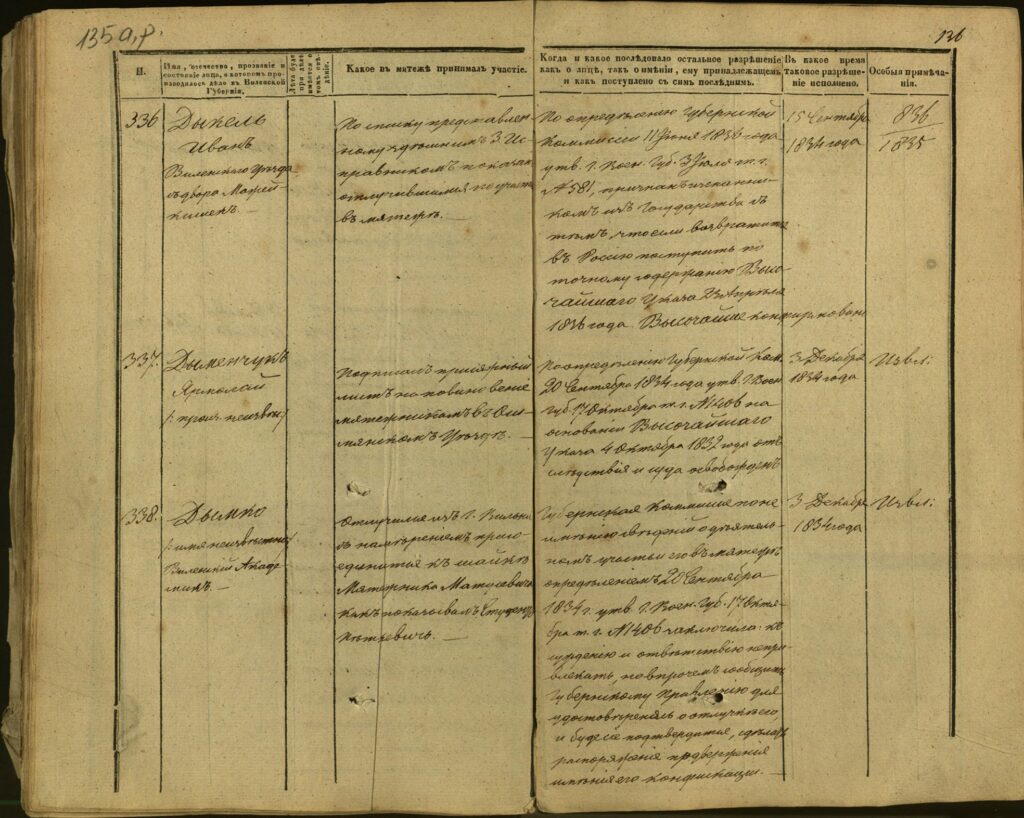 135 а,р.
136
Н.
Имя, отечество, прозваніе и
состояніе лица, о которомъ про-
изводилось дѣло въ Виленской
Губерніи.
Какое въ мятежѣ принималъ участіе.
Когда и какое послѣдовало остальное разрѣшеніе
какъ о лицѣ, такъ о имѣніи, ему принадлежащемъ
и какъ поступлено съ симъ послѣднимъ.
Въ какое время
таковое разрѣше-
ніе исполнено.
Особыя примѣча-
нія.
336
Дыкель
Иванъ
Виленскаго Уѣзда
съ двора
По списку представлен-
ному здѣшнимъ З. Ис-
правникомъ показанъ
отлучившимся по участію
въ мятежѣ.
По опредѣленію Губернской
Коммисіи 11 Іюня 1836 года
утв. Г. Воен. Губ. 3 Іюля т. г.
№ 581, признанъ изгнанни-
комъ изъ Государства съ
тѣмъ, что если возвратится
въ Россію поступить по
точному содержанію Высо-
чайшаго Указа 23 Апрѣля
1836 года. Высочайше конфирмовано
15 Сентября
1834 года
836
1835
337.
Дыменчукъ
Ярмолай
Подписалъ присяжный
листъ на повиновеніе
мятежникамъ въ Ош-
мянскомъ Уѣздѣ.
По опредѣленію Губернской Ком.
20 Сентября 1834 года утв. Г. Воен.
Губ. 17 Октября т. г. № 1406 на
основаніи Высочайшаго
Указа 4 Октября 1832 года отъ
слѣдствія и суда освобожденъ
3 Декабря
1834 года
Извл:
338.
Дымко
/: имя неизвѣстно :/
Виленскій Акаде-
микъ.
Отлучился изъ г. Вильна
съ намѣреніемъ присо-
единиться къ шайкѣ
Мятежника Матусевича
какъ показывалъ Студентъ
Губернская Коммисія по не-
имѣнію свѣдѣній о дѣятель-
номъ участіи его въ мятежѣ
опредѣленіемъ 20 Сентября
1834 г. утв. Г. Воен. Губ. 17 Октя-
бря т. г. № 1406 заключила: къ
сужденію и отвѣтствію непри-
влекать, но впрочемъ сообщить
Губернскому Правленію для
удостовѣренія о отлучкѣ его,
и буде сіе подтвердится, сдѣлать
распоряженіе
имѣнія его конфискаціи.
3 Декабря
1834 года
Извл: